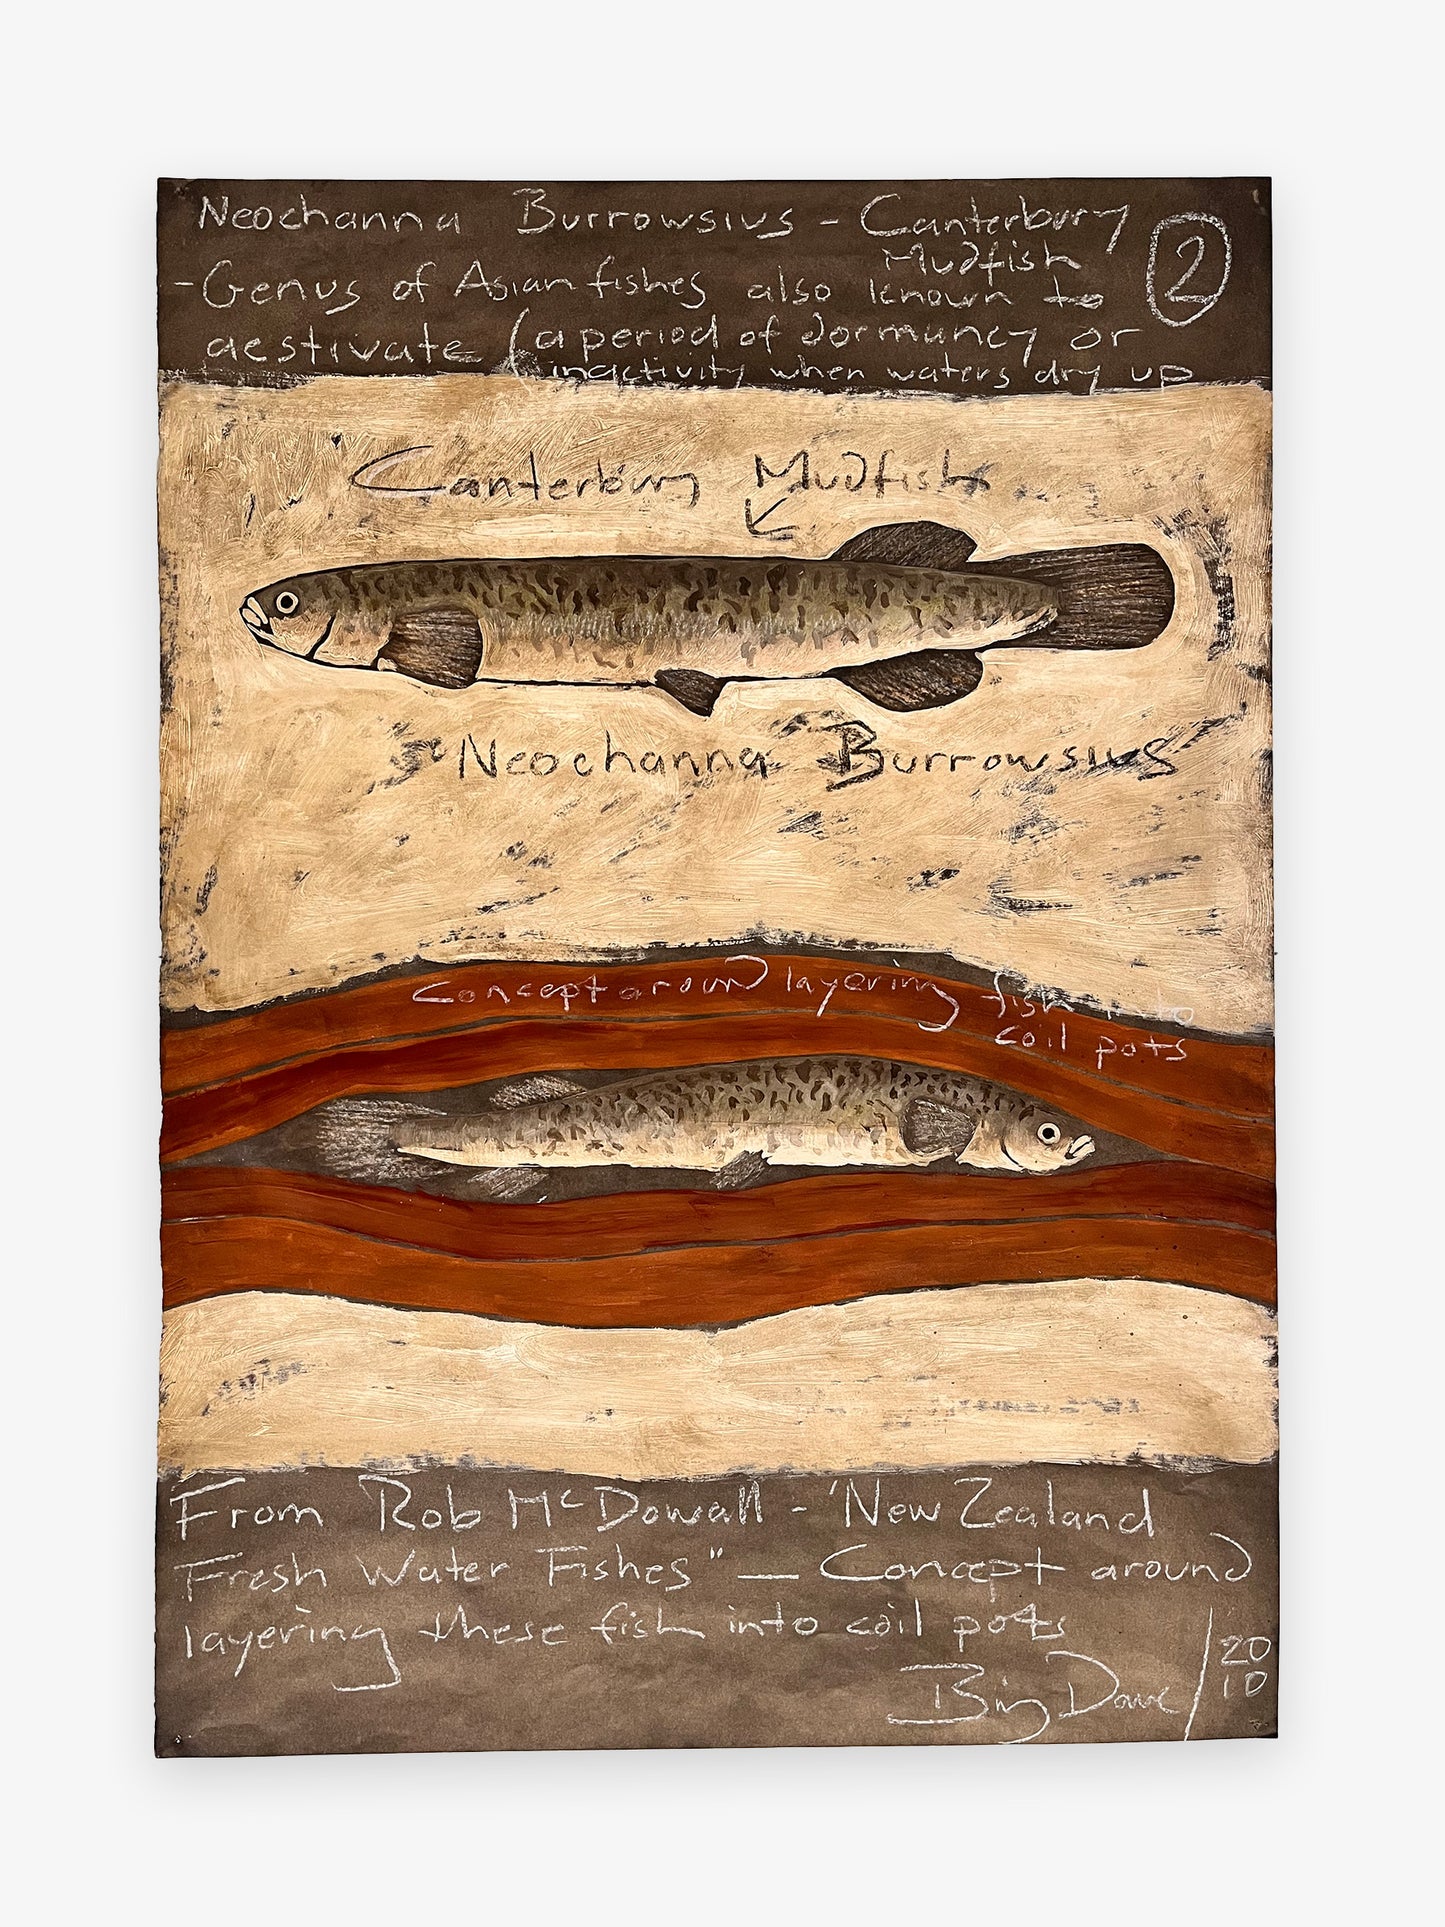 Neochanna Burrowsius - Canterbury
Mudfish
2
- Genus of Asian fishes also known to
aestivate (a period of dormancy or
inactivity when waters dry up
Canterbury Mudfish
"Neochanna Burrowsius
Concept around layering fish into
coil pots
From Rob McDowall - 'New Zealand
Fresh Water Fishes" — Concept around
layering these fish into coil pots
Big Dave / 20
10